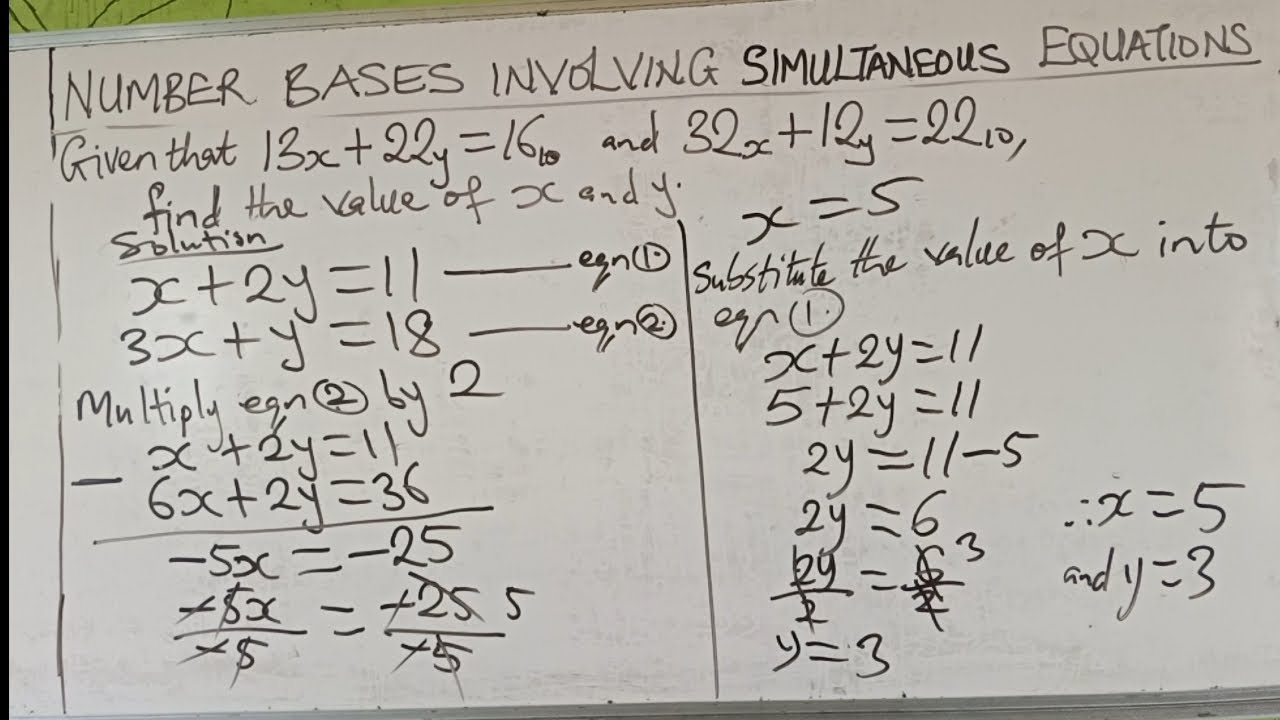 NUMBER BASES INVOLVING SIMULTANEOUS EQUATIONS
Given that 13x+22y=16₁₀ and 32x+12y=22₁₀,
find the value of x and y.
Solution
x+2y=11 ——— eqn①.
3x+y=18 ——— eqn②.
Multiply eqn② by 2
x+2y=11
— 6x+2y=36
-5x=-25
-5x/-5 = -25/-5 5
x=5
Substitute the value of x into
eqn①.
x+2y=11
5+2y=11
2y=11-5
2y=6
2y/2 = 6/2 3
y=3
∴x=5
and y=3